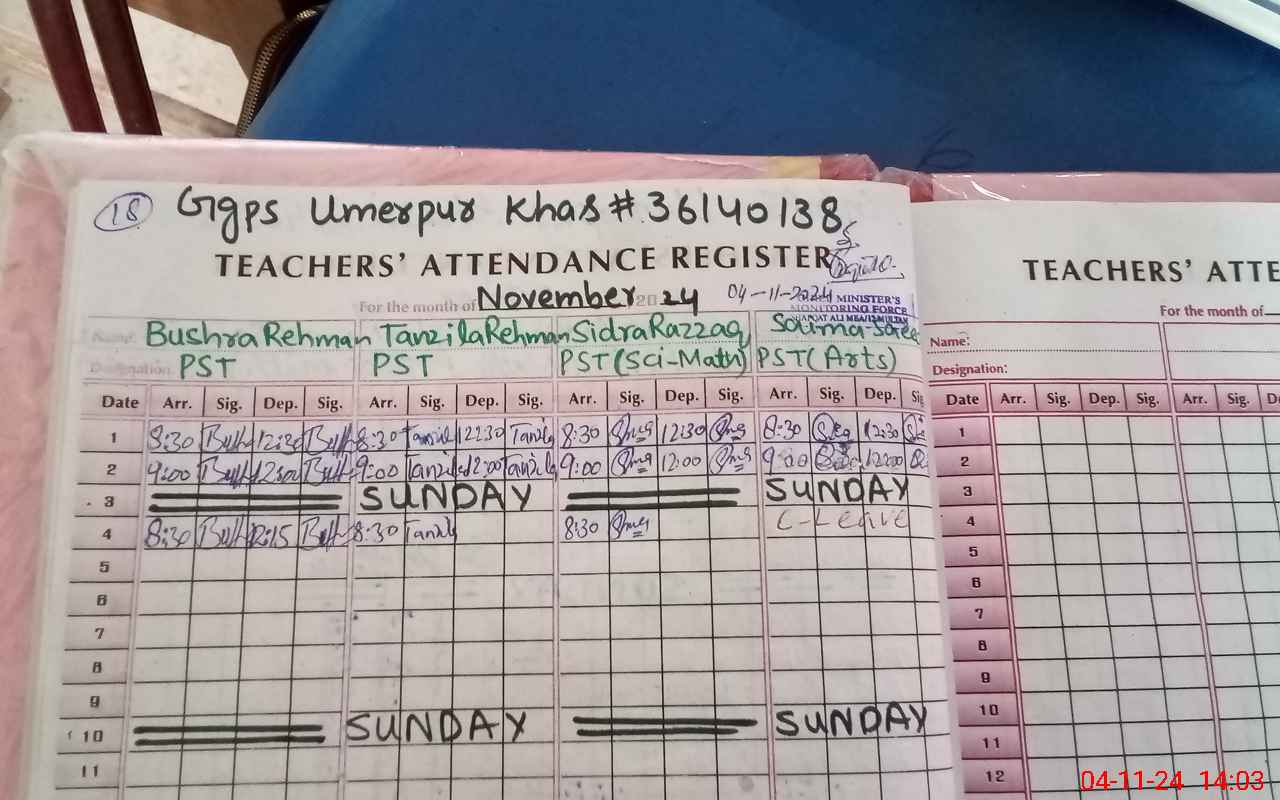 18 Ggps Umerpur Khas # 36140138
TEACHERS' ATTENDANCE REGISTER
For the month of November 2024 04-11-2024
MINISTER'S
MONITORING FORCE
Name: Bushra Rehman Tanzila Rehman Sidra Razzaq Salima
Designation: PST PST PST (Sci-Math) PST (Arts)
Date Arr. Sig. Dep. Sig. Arr. Sig. Dep. Sig. Arr. Sig. Dep. Sig. Arr. Sig. Dep. Sig
1 8:30 12:30 8:30 Tanzila 12:30 Tanzila 8:30 12:30 8:30 12:30
2 9:00 12:00 9:00 Tanzila 12:00 Tanzila 9:00 12:00 9:00 12:00
3 SUNDAY SUNDAY
4 8:30 12:15 8:30 Tanzila 8:30 C-Leave
5
6
7
8
9
10 SUNDAY SUNDAY
11
TEACHERS' ATTE
For the month of
Name:
Designation:
Date Arr. Sig. Dep. Sig. Arr. Sig. D
1
2
3
4
5
6
7
8
9
10
11
12
04-11-24 14:03